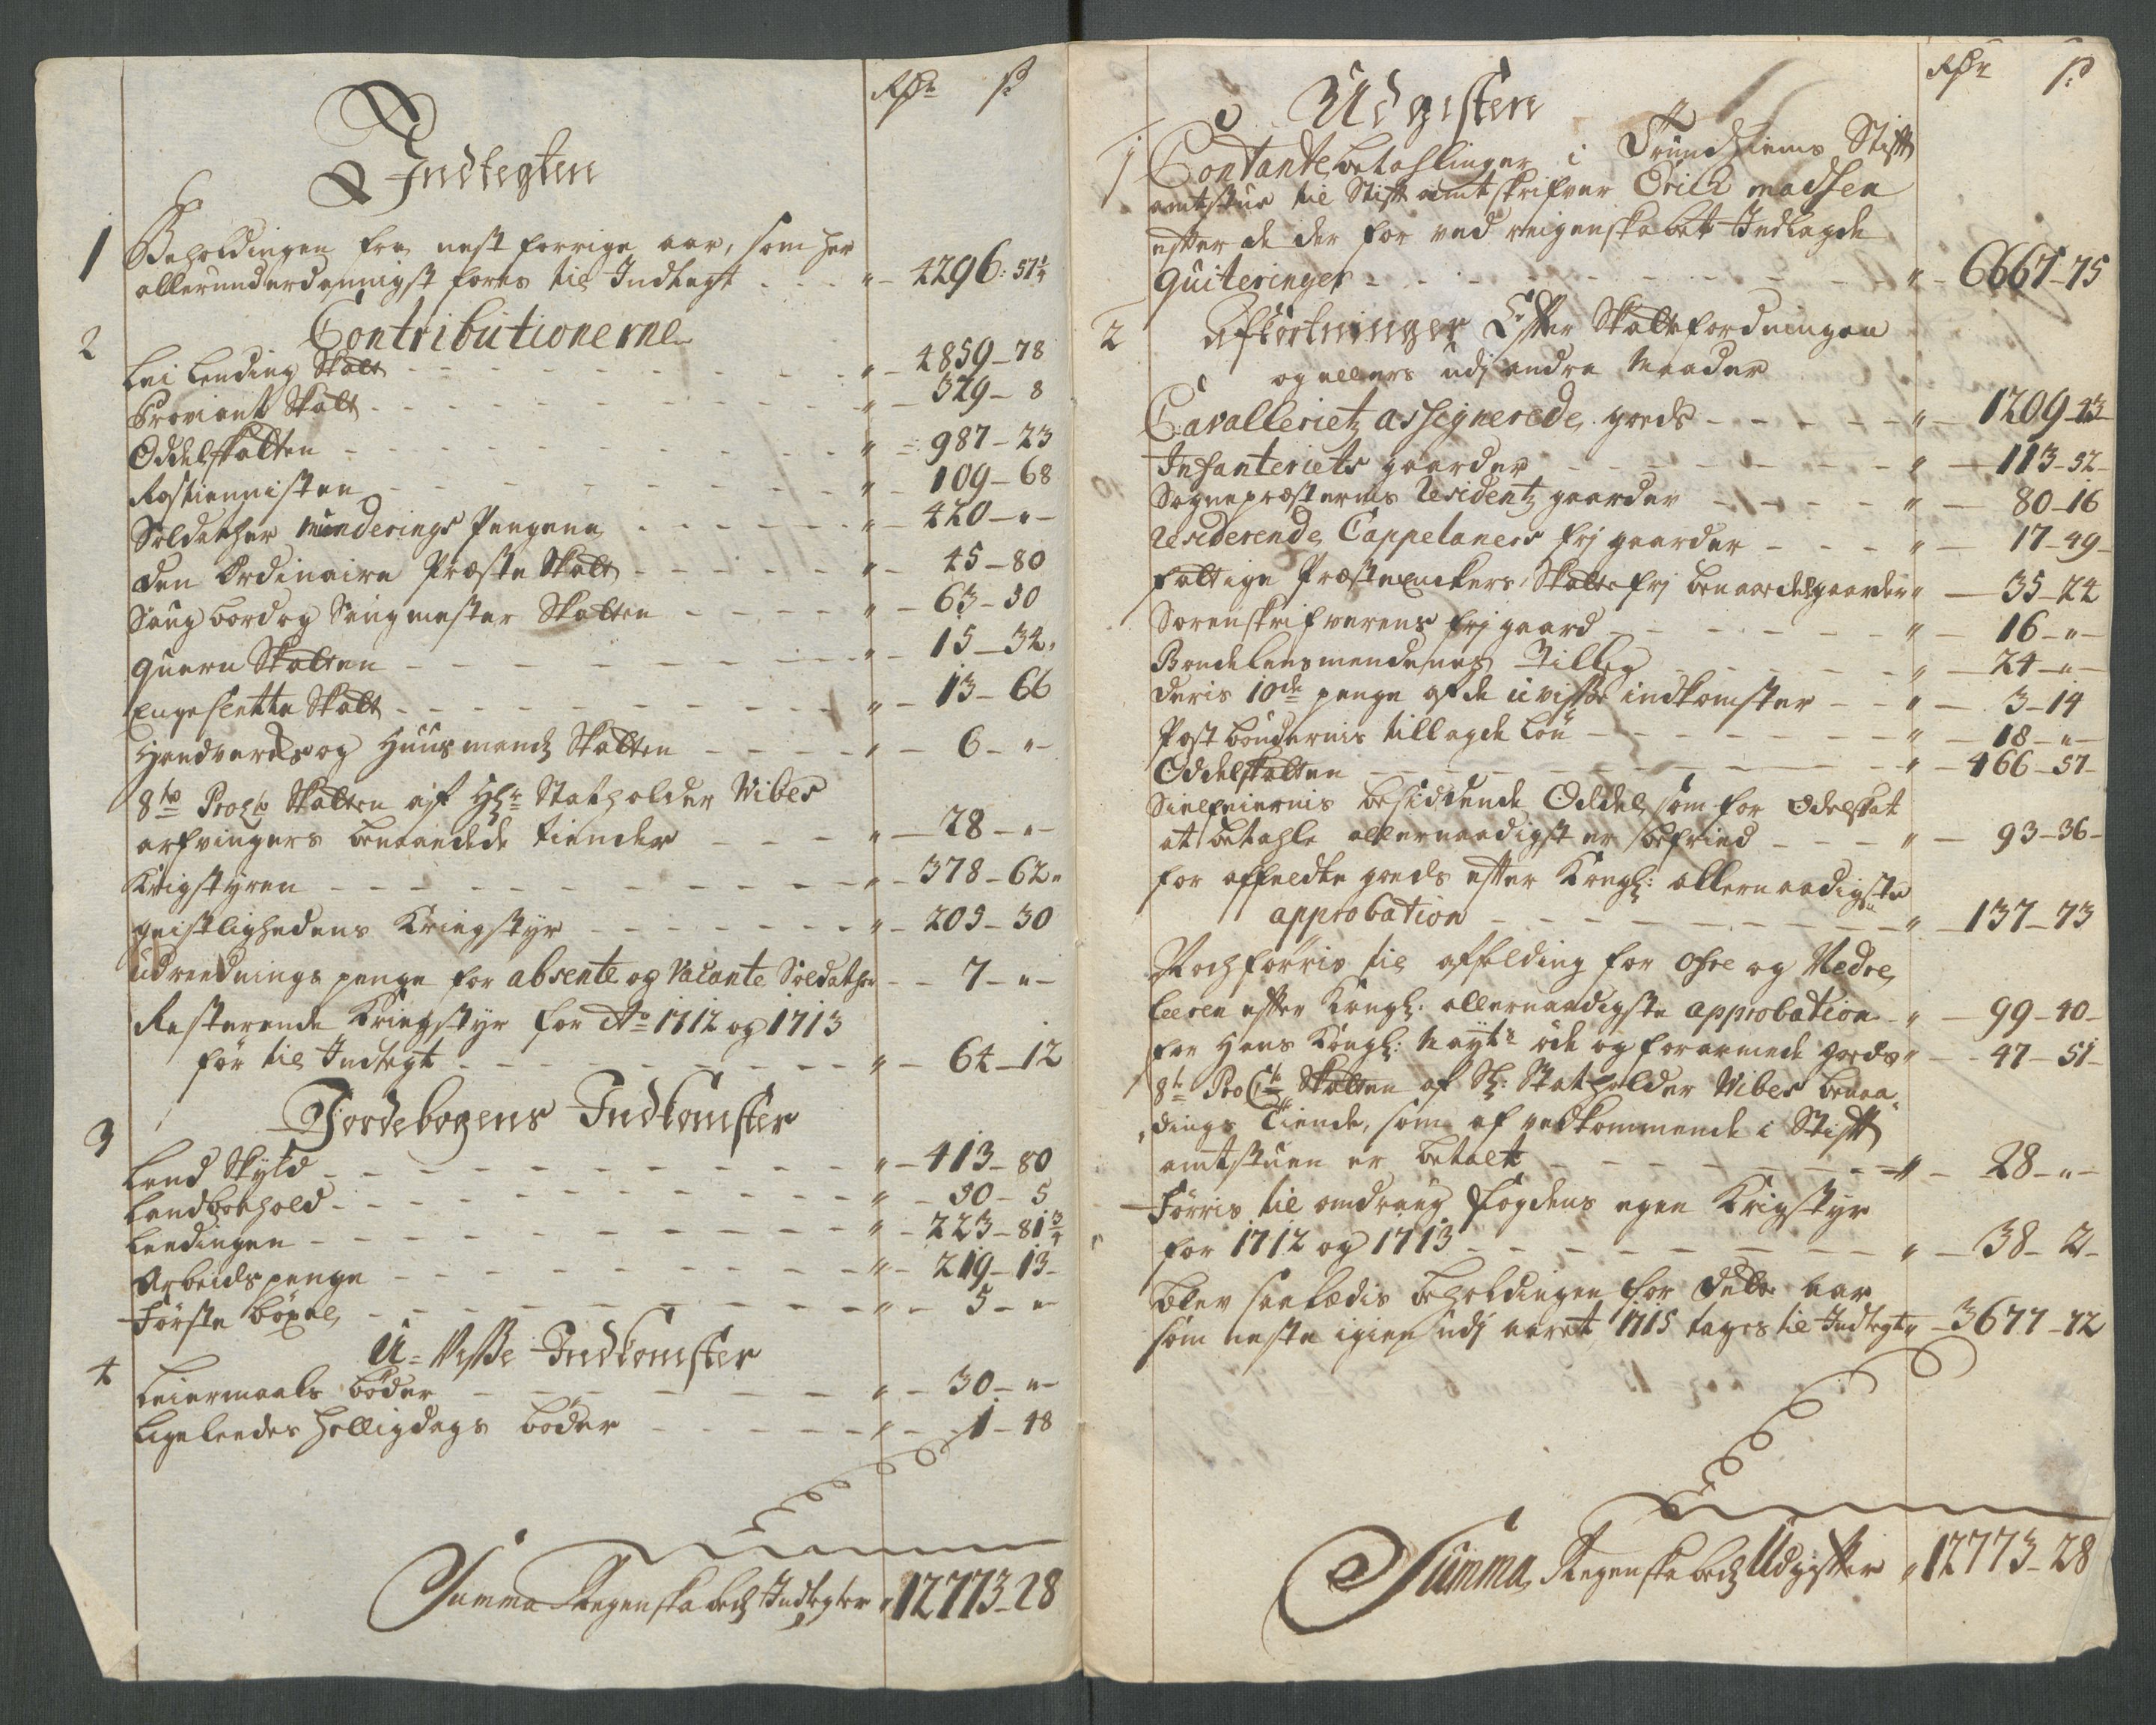 Rdr ß
Indtegten
1 Beholdingen fra nest forrige aar, som her
allerunderdannigst föres til Indtegt - - - " - 4296: 51¼
2 Contributionerne
Lei Lending Skatt - - - " - 4859 - 78
Proviant Skatt - - - " - 329 - 8
Oddelskatten - - - " - 987 - 23
Rostienisten - - - " - 109 - 68
Soldather Munderings Pengene - - - " - 420 - " -
Den Ordinaire Præste Skatt - - - " - 45 - 80
Saug bord og Saugmester Skatten - - - " - 63 - 30
Quern Skatten - - - " - 15 - 32
Engesletta Skatt - - - " - 13 - 66
Handverks og Huusmandz Skatten - - - " - 6 - " -
8to Procto Skatten af Hr Statholder Wibes
arfvingers benaadede tiender - - - " - 28 - " -
Krigstyren - - - " - 378 - 62
geistlighedens Kriegstyr - - - " - 205 - 30
Udrednings penge for absente og Vacante Soldather - - 7 - " -
Resterende Kriegstyr for Ao 1712 og 1713
för til Indtegt - - - " - 64 - 12
3 Jordebogens Indkomster
Land Skyld - - - " - 413 - 80
Landbohold - - - " - 30 - 5
Leedingen - - - " - 223 - 81¾
Arbeids penge - - - " - 219 - 13 -
Förste böxel - - - " - 5 - " -
4 U-Visse Indkomster
Leiermaals böder - - - " - 30 - " -
Ligeledes Helligdags böder - - - " - 1 - 48
Summa Regenskabedz Indtegter " 12773 - 28
Rdr ß
Udgiften
1 Contante betahlinger i Trundhiems Stifft
amtstue til Stifft amtskrifver Erich Madsen
effter de der for ved reigenskabet Indlagde
Quiteringer - - - " - 6667 - 75
2 Afkortninger Effter Skatteforordningen
og ellers udj andre Maader
Cavallerietz assignerede goeds - - - " - 1209 - 43
Infanteriets gaarder - - - " - 113 - 52 -
Sogneprösternes Residentz gaarder - - - " - 80 - 16
Residerende Cappelaners frj gaarder - - - " - 17 - 49 -
Fattige Præsteenckers Skatte frj benaadelsgaarder " - 35 - 24
Sorenskrifverens frj gaard - - - " - 16 - " -
Bondelensmendenes Tilleg - - - " - 24 - " -
Deris 10de penge af de uvisse indkomster - - " - 3 - 14
Post bøndernis tillagde Löön - - - " - 18 - " -
Oddelskatten - - - " - 466 - 57 -
Sielfeiernis besiddende Oddel, som for Odelskat
at betahle allernaadigst er befried - - - " - 93 - 36 -
for affeldte goeds effter Kongl: allernaadigste
approbation - - - " - 137 - 73
Nochförris til affelding for Ofre og Nedre
leeren effter Kongl: allernaadigste approbation - " - 99 - 40 -
for Hans Kongl: Mayts öde og forarmede goeds " - 47 - 51 -
8to Procto Skatten af Hr: Statholder Wibes benaa-
dings Tiende, som af vedkommende i Stifft
amtstuen er betalt - - - " - 28 - " -
Förris til omdraug fogdens egen Krigstyr
for 1712 og 1713 - - - " - 38 - 2 -
blev saaledis beholdingen for dette aar
som neste igien udj aaret 1715 tages til Indtegt " - 3677 - 72
Summa Regenskabedz Udgiffter " 12773 - 28